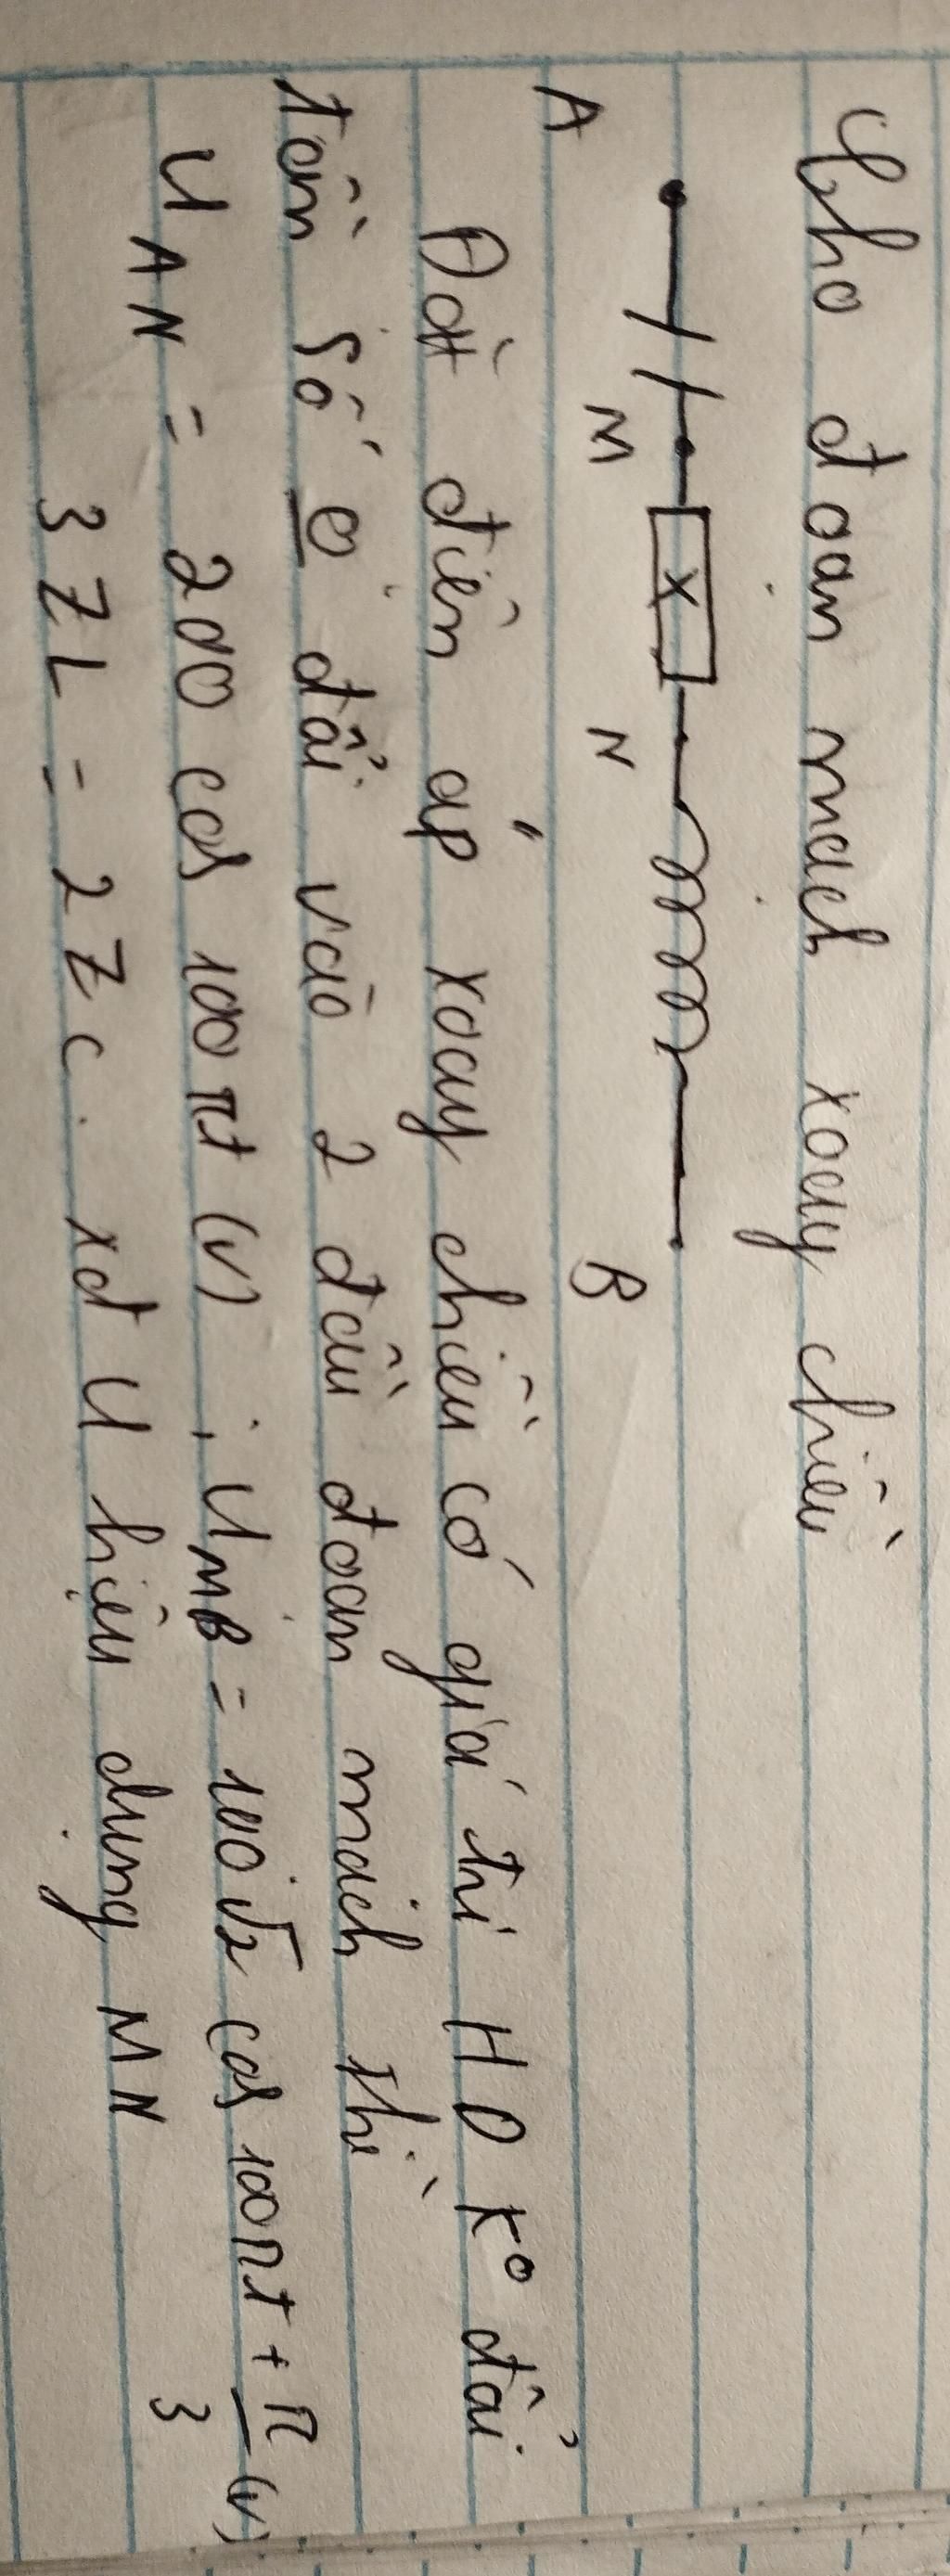 Cho đoạn mạch xoay chiều
A M X N B
Đặt điện áp xoay chiều có giá trị HD k° đổi
tần số o đổi vào 2 đầu đoạn mạch thì
U AN = 200 cos 100πt (V) ; U MB = 100√2 cos 100πt + π/3 (V)
3 ZL = 2 Zc. xđ U hiệu dụng MN